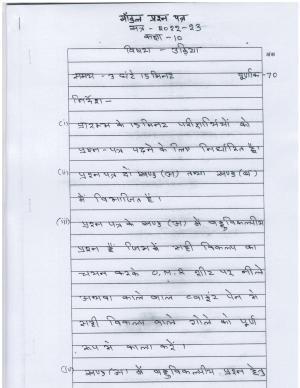 मॉडल प्रश्न पत्र
सत्र - 2022-23
कक्षा - 10
विषय - उड़िया
समय - 3 घंटे 15 मिनट पूर्णांक - 70
निर्देश -
(i) प्रारम्भ के 15 मिनट परीक्षार्थियों को
प्रश्न-पत्र पढ़ने के लिए निर्धारित है।
(ii) प्रश्न पत्र दो खण्ड (अ) तथा खण्ड (ब)
में विभाजित है।
(iii) प्रश्न पत्र के खण्ड (अ) में बहुविकल्पीय
प्रश्न हैं जिसमें सही विकल्प का
चयन करके O.M.R शीट पर नीले
अथवा काले बाल प्वाइंट पेन से
सही विकल्प वाले गोले को पूर्ण
रूप से काला करें।
(iv) खण्ड (अ) में बहुविकल्पीय प्रश्न हेतु